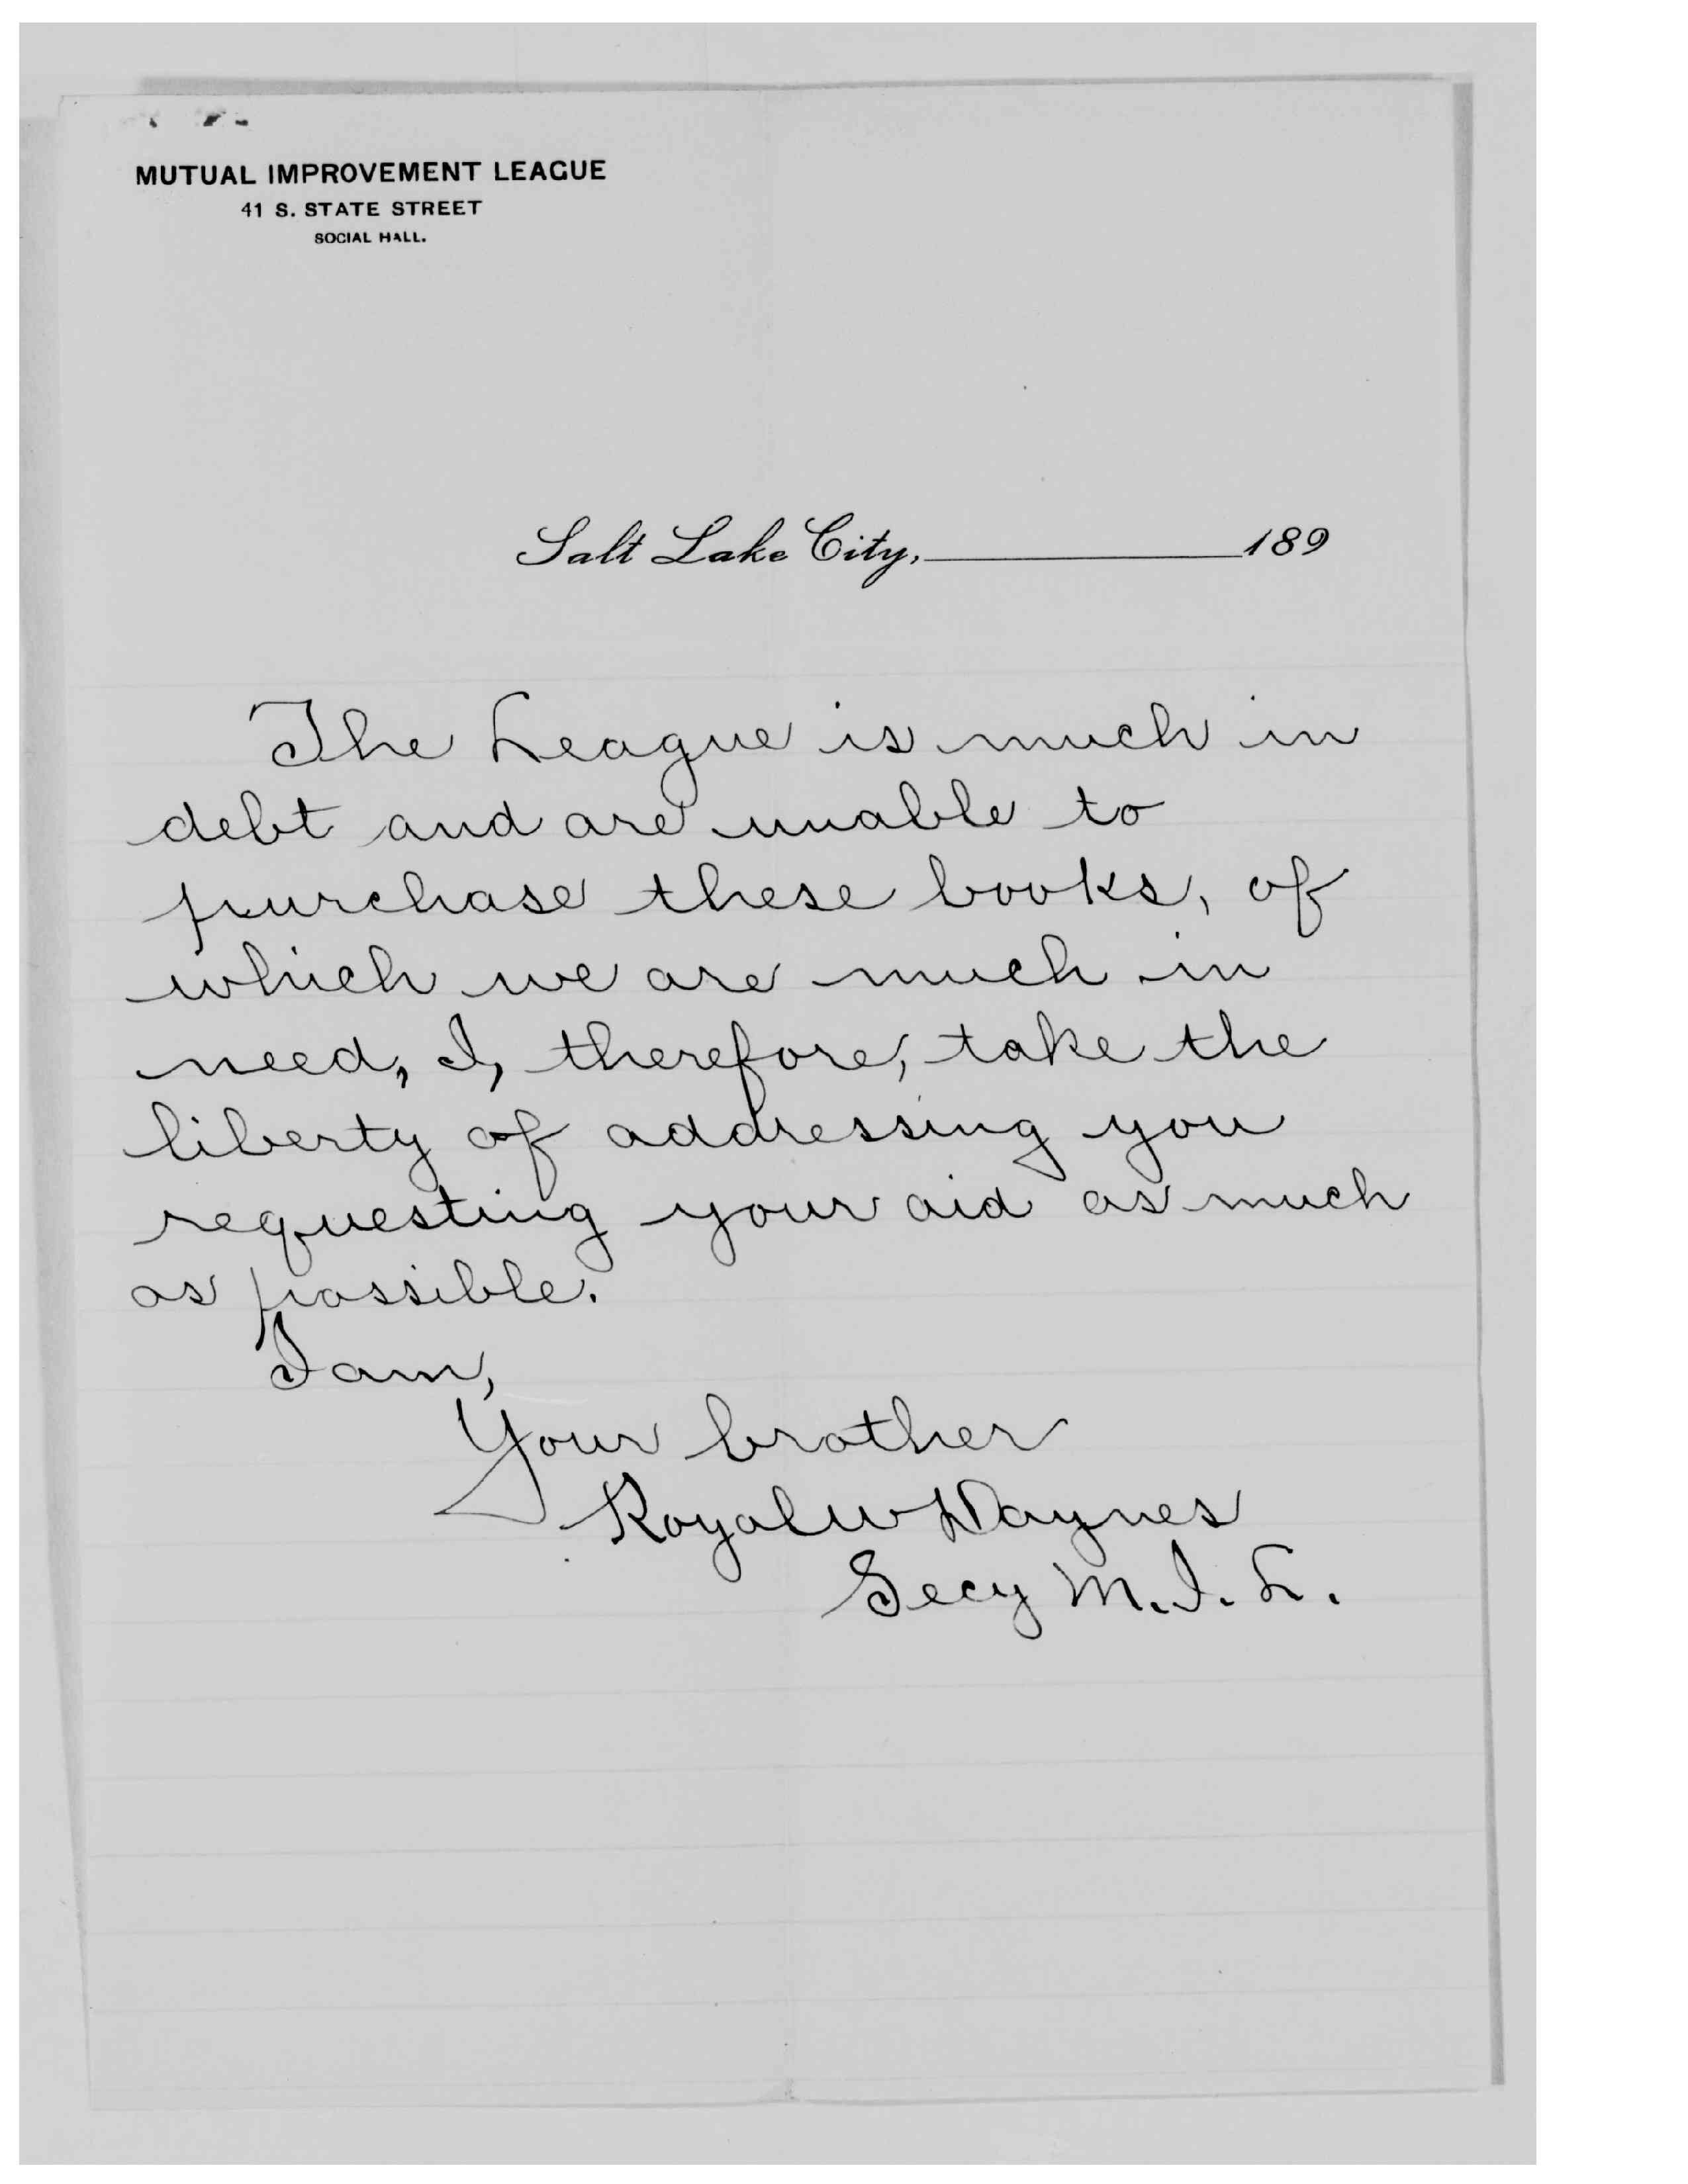 MUTUAL IMPROVEMENT LEAGUE
41 S. STATE STREET
SOCIAL HALL.
Salt Lake City, 189
The League is much in
debt and are unable to
purchase these books, of
which we are much in
need, I, therefore, take the
liberty of addressing you
requesting your aid as much
as possible.
I am,
Your brother
Royal W Daynes
Secy M.I.L.